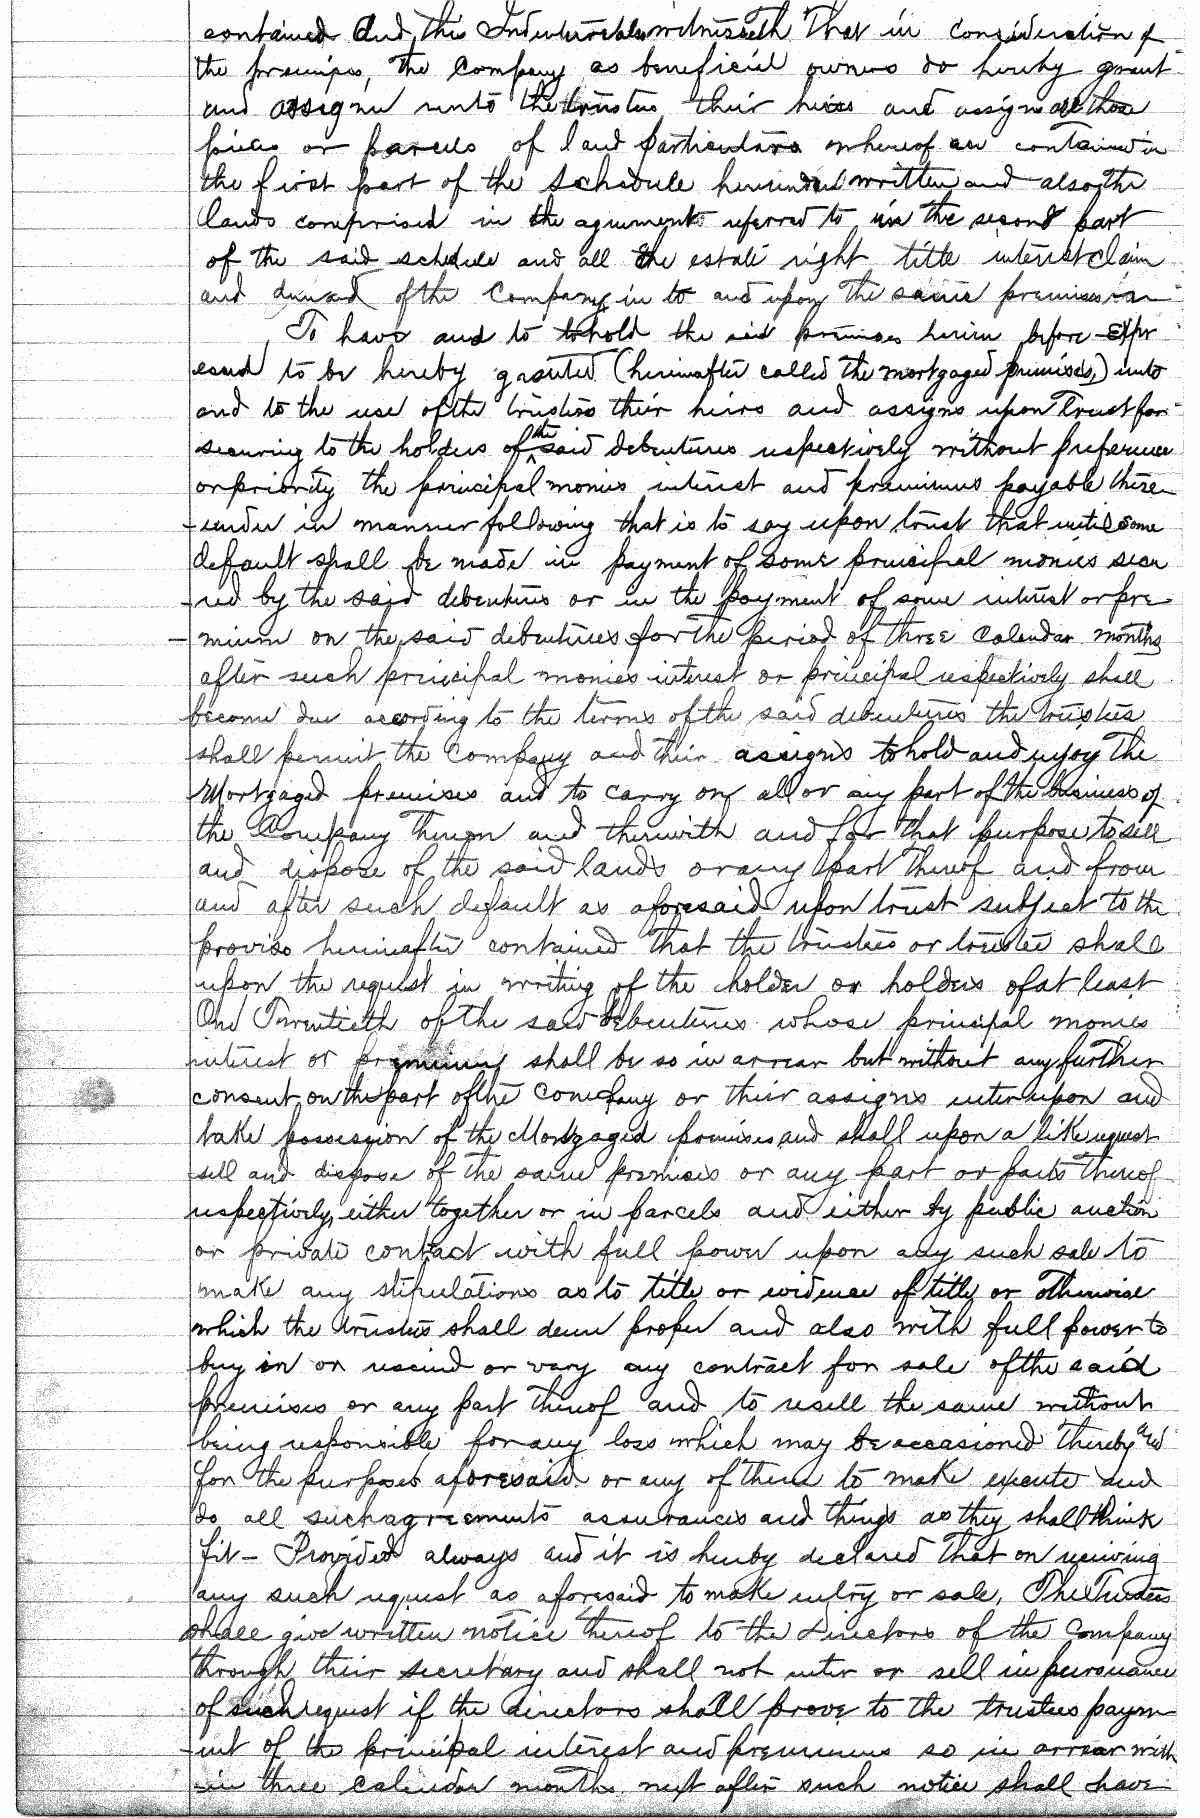 contained And this Indenture witnesseth That in consideration of
the premises, The Company as beneficial owners do hereby grant
and assign unto the trustees their heirs and assigns all those
pieces or parcels of land particulars whereof are contained in
the first part of the Schedule hereunder written and also the
lands comprised in the agreements referred to in the second part
of the said schedule and all the estate right title interest claim
and demand of the Company in to and upon the same premises
To have and to hold the said premises herein before Expr
essed to be hereby granted (hereinafter called the mortgaged premises,) unto
and to the use of the trustees their heirs and assigns upon Trust for
securing to the holders of the said debentures respectively without preference
or priority the principal monies interest and premiums payable there
-under in manner following that is to say upon trust that until some
default shall be made in payment of some principal monies secu
-red by the said debentures or in the payment of some interest or pre
-mium on the said debentures for the period of three Calendar months
after such principal monies interest or principal respectively shall
become due according to the terms of the said debentures the trustees
shall permit the Company and their assigns to hold and enjoy the
Mortgaged premises and to carry on all or any part of the business of
the Company thereon and therewith and for that purpose to sell
and dispose of the said lands or any part thereof and from
and after such default as aforesaid upon trust subject to the
proviso hereinafter contained that the trustees or trustee shall
upon the request in writing of the holder or holders of at least
One Twentieth of the said debentures whose principal monies
interest or premium shall be so in arrear but without any further
consent on the part of the Company or their assigns enter upon and
take possession of the Mortgaged premises and shall upon a like request
sell and dispose of the same premises or any part or parts thereof
respectively, either together or in parcels and either by public auction
or private contract with full power upon any such sale to
make any stipulations as to title or evidence of title or otherwise
which the trustees shall deem proper and also with full power to
buy in or rescind or vary any contract for sale of the said
premises or any part thereof and to resell the same without
being responsible for any loss which may be occasioned thereby and
for the purposes aforesaid or any of them to make execute and
do all such agreements assurances and things as they shall think
fit- Provided always and it is hereby declared That on receiving
any such request as aforesaid to make entry or sale, The Trustees
shall give written notice thereof to the Directors of the Company
through their secretary and shall not enter or sell in pursuance
of such request if the directors shall prove to the trustees paym
-ent of the principal interest and premiums so in arrear with
-in three calendar months next after such notice shall have